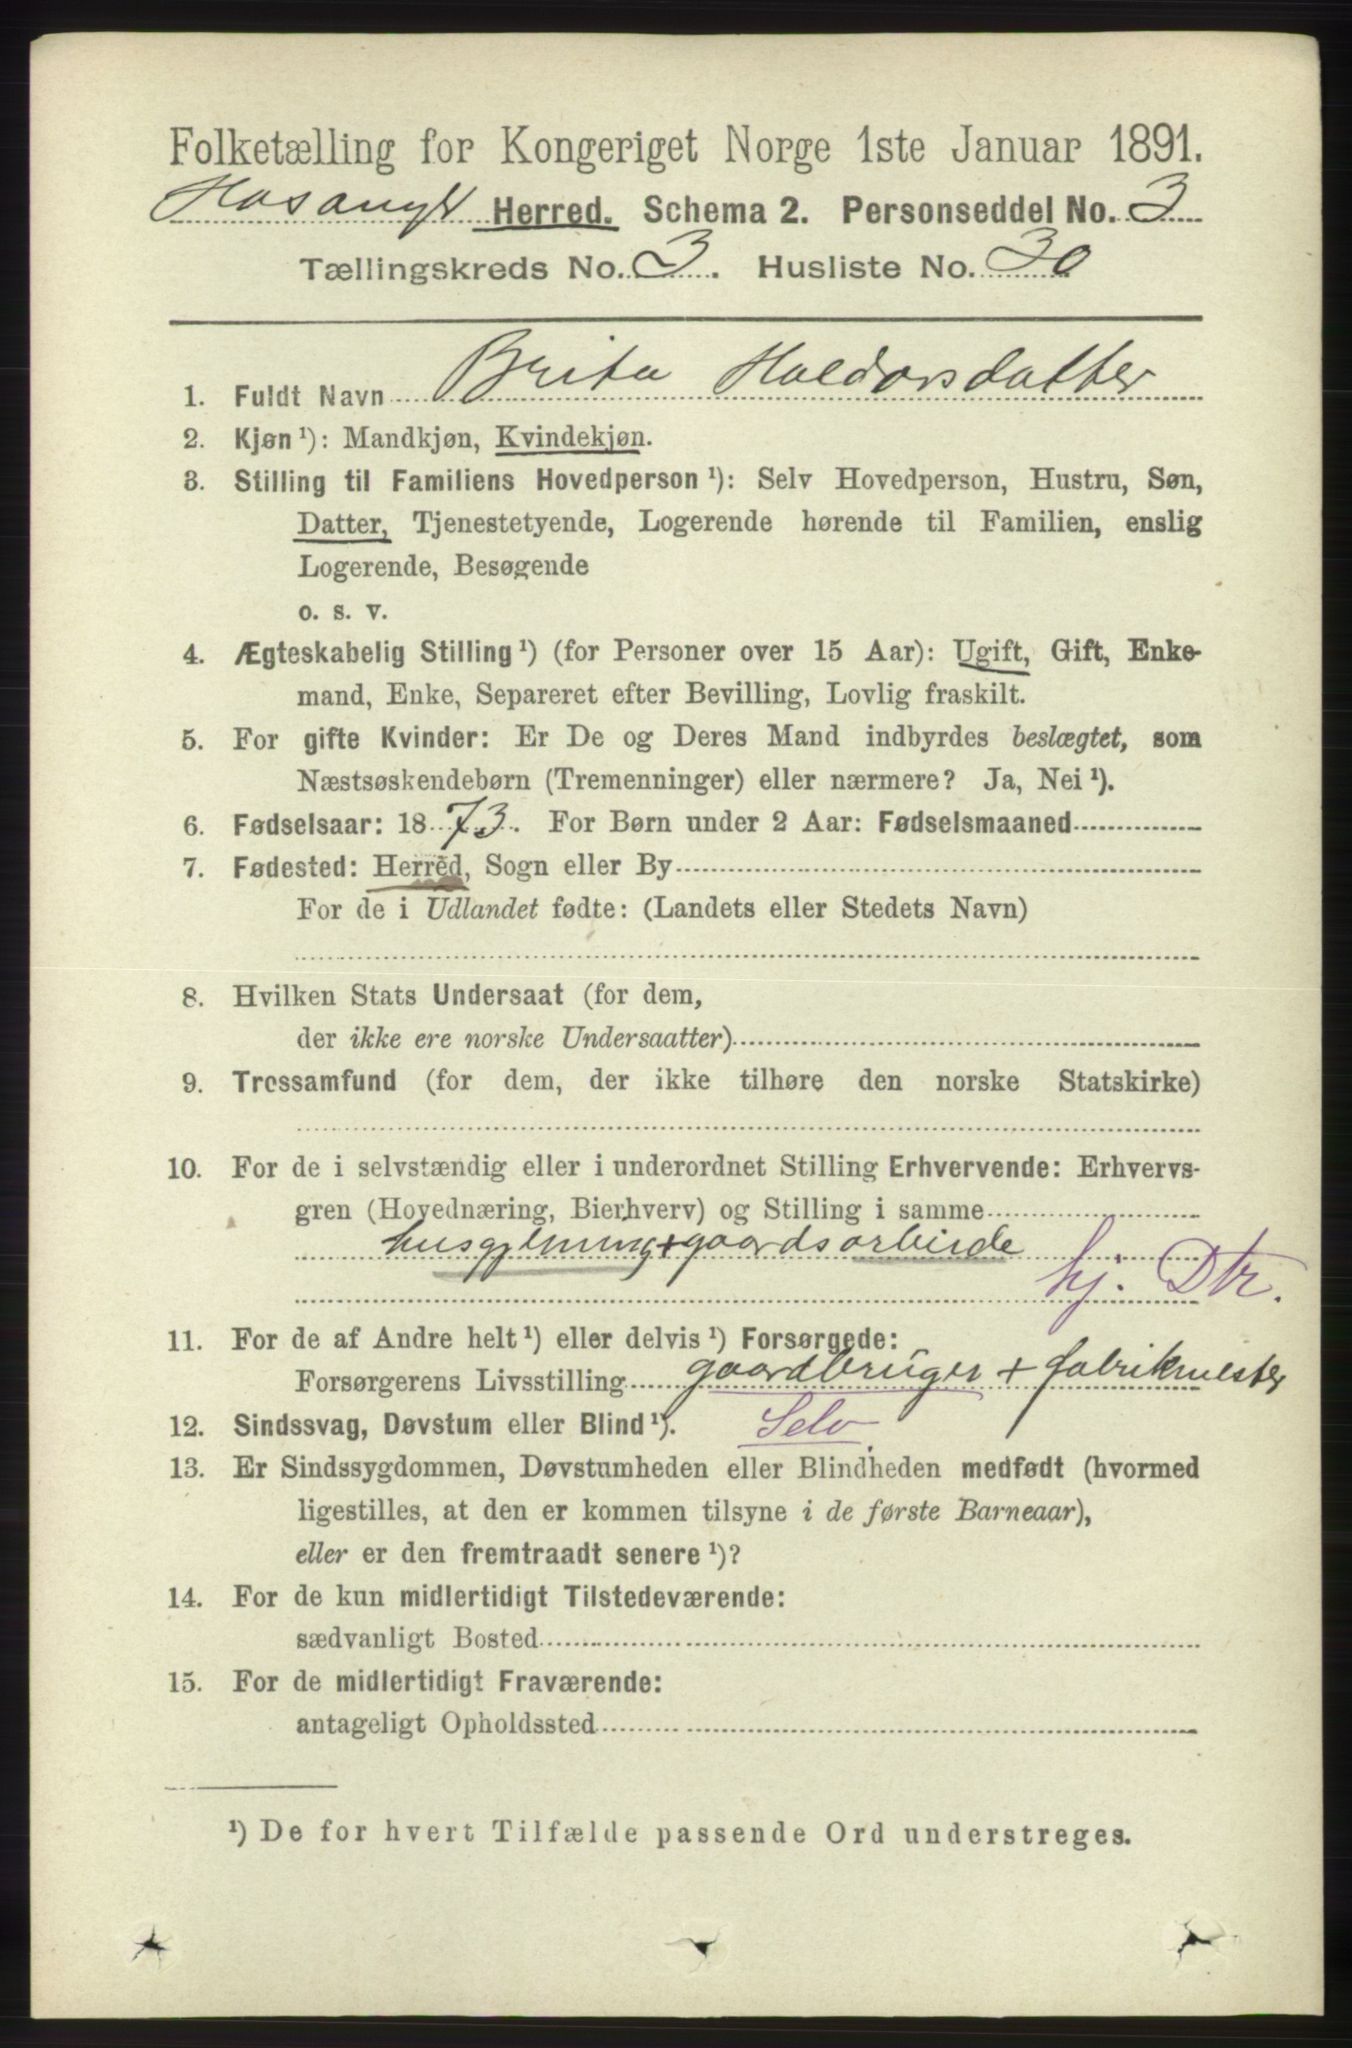 Folketælling for Kongeriget Norge 1ste Januar 1891.
Hosanger Herred. Schema 2. Personseddel No. 3
Tællingskreds No. 3. Husliste No. 30
1. Fuldt Navn Brita Haldorsdatter
2. Kjøn ¹): Mandkjøn, Kvindekjøn.
3. Stilling til Familiens Hovedperson ¹): Selv Hovedperson, Hustru, Søn,
Datter, Tjenestetyende, Logerende hørende til Familien, enslig
Logerende, Besøgende
o. s. v.
4. Ægteskabelig Stilling ¹) (for Personer over 15 Aar): Ugift, Gift, Enke-
mand, Enke, Separeret efter Bevilling, Lovlig fraskilt.
5. For gifte Kvinder: Er De og Deres Mand indbyrdes beslægtet, som
Næstsøskendebørn (Tremenninger) eller nærmere? Ja, Nei ¹).
6. Fødselsaar: 1873. For Børn under 2 Aar: Fødselsmaaned
7. Fødested: Herred, Sogn eller By
For de i Udlandet fødte: (Landets eller Stedets Navn)
8. Hvilken Stats Undersaat (for dem,
der ikke ere norske Undersaatter)
9. Trossamfund (for dem, der ikke tilhøre den norske Statskirke)
10. For de i selvstændig eller i underordnet Stilling Erhvervende: Erhvervs-
gren (Hovednæring, Bierhverv) og Stilling i samme
husgjerning + gaardsarbeide
hj. Dtr.
11. For de af Andre helt ¹) eller delvis ¹) Forsørgede:
Forsørgerens Livsstilling gaardbruger + fabrikmester
12. Sindssvag, Døvstum eller Blind ¹). Selv
13. Er Sindssygdommen, Døvstumheden eller Blindheden medfødt (hvormed
ligestilles, at den er kommen tilsyne i de første Barneaar),
eller er den fremtraadt senere ¹)?
14. For de kun midlertidigt Tilstedeværende:
sædvanligt Bosted
15. For de midlertidigt Fraværende:
antageligt Opholdssted
¹) De for hvert Tilfælde passende Ord understreges.